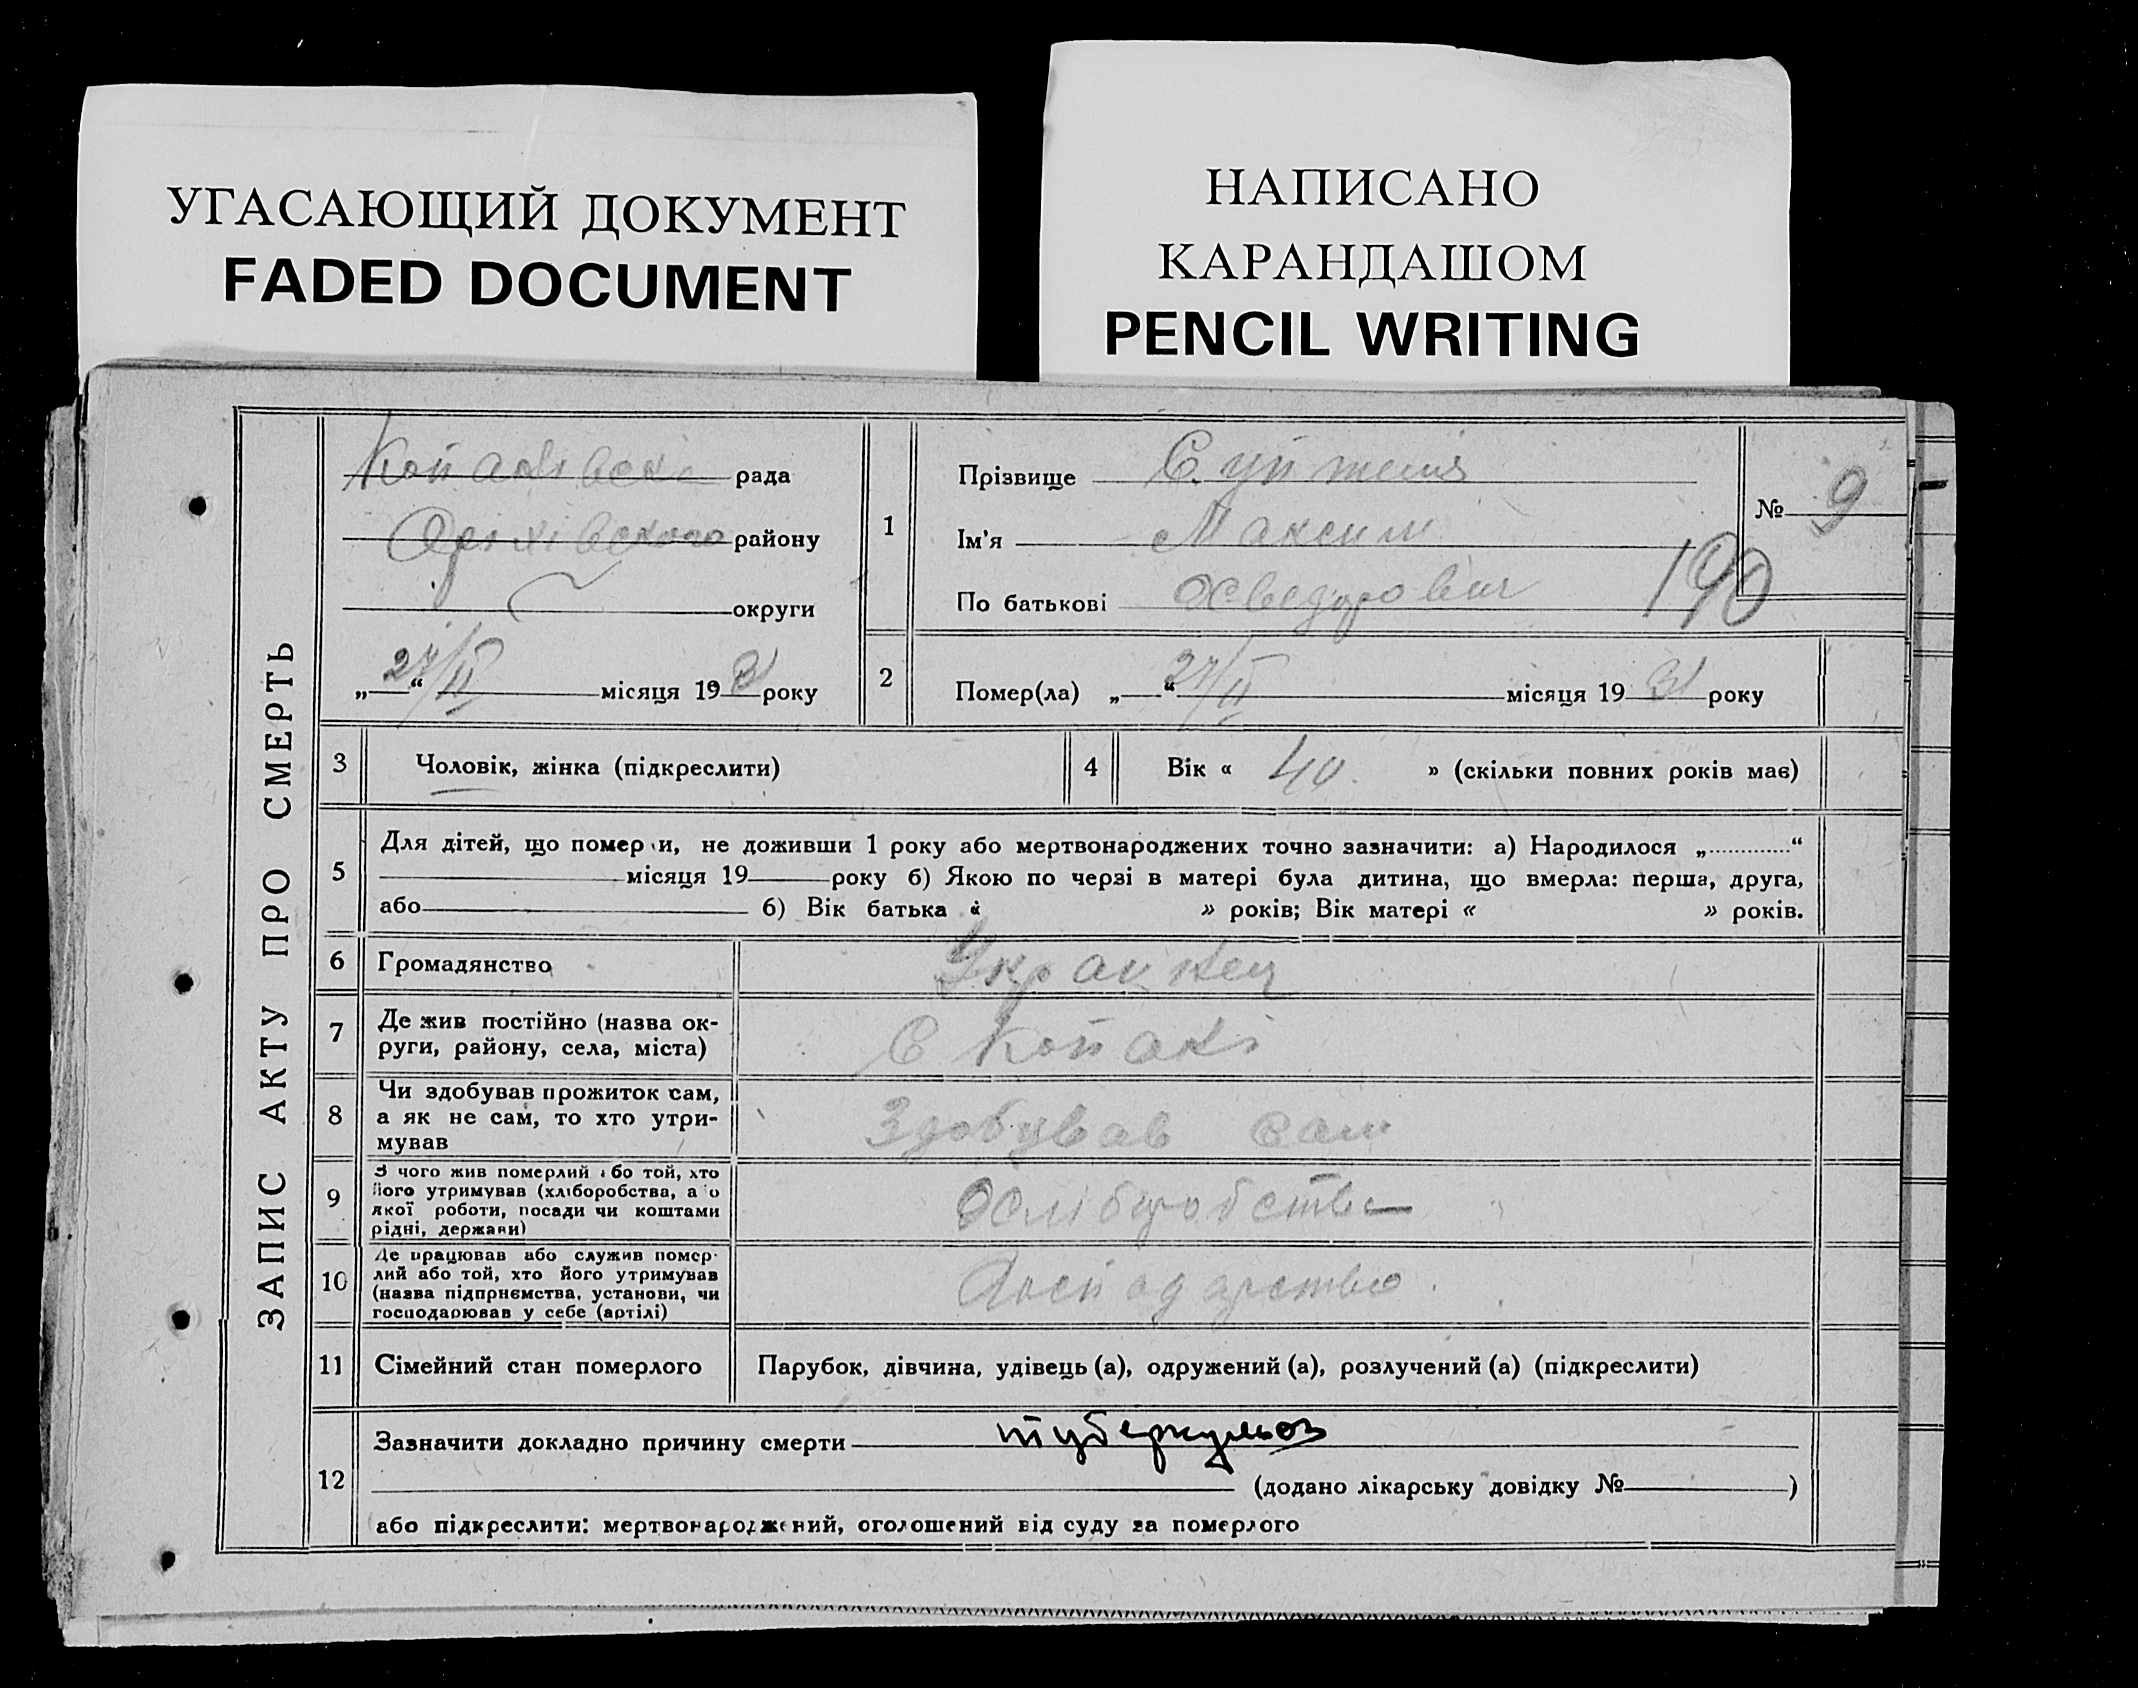 УГАСАЮЩИЙ ДОКУМЕНТ
FADED DOCUMENT
НАПИСАНО
КАРАНДАШОМ
PENCIL WRITING
ЗАПИС АКТУ ПРО СМЕРТЬ
рада
району
округи
„27/II“ місяця 1931 року
1
Прізвище
Ім'я Максим
По батькові Хведорович
№ 9
190
2
Помер(ла) „27/II“ місяця 1931 року
3
Чоловік, жінка (підкреслити)
4
Вік « 40 » (скільки повних років має)
5
Для дітей, що помер и, не доживши 1 року або мертвонароджених точно зазначити: а) Народилося „ “
місяця 19 року б) Якою по черзі в матері була дитина, що вмерла: перша, друга,
або б) Вік батька « » років; Вік матері « » років.
6
Громадянство Українец
7
Де жив постійно (назва ок-
руги, району, села, міста)
С Копані
8
Чи здобував прожиток сам,
а як не сам, то хто утри-
мував
Здобував сам
9
З чого жив померлий або той, хто
його утримував (хліборобства, а о
якої роботи, посади чи коштами
рідні, держави)
Хліборобство
10
Де працював або служив помер-
лий або той, хто його утримував
(назва підприємства, установи, чи
господарював у себе (артілі)
Господарство
11
Сімейний стан померлого
Парубок, дівчина, удівець (а), одружений (а), розлучений (а) (підкреслити)
12
Зазначити докладно причину смерти туберкульоз
(додано лікарську довідку № )
або підкреслити: мертвонароджений, оголошений від суду за померлого